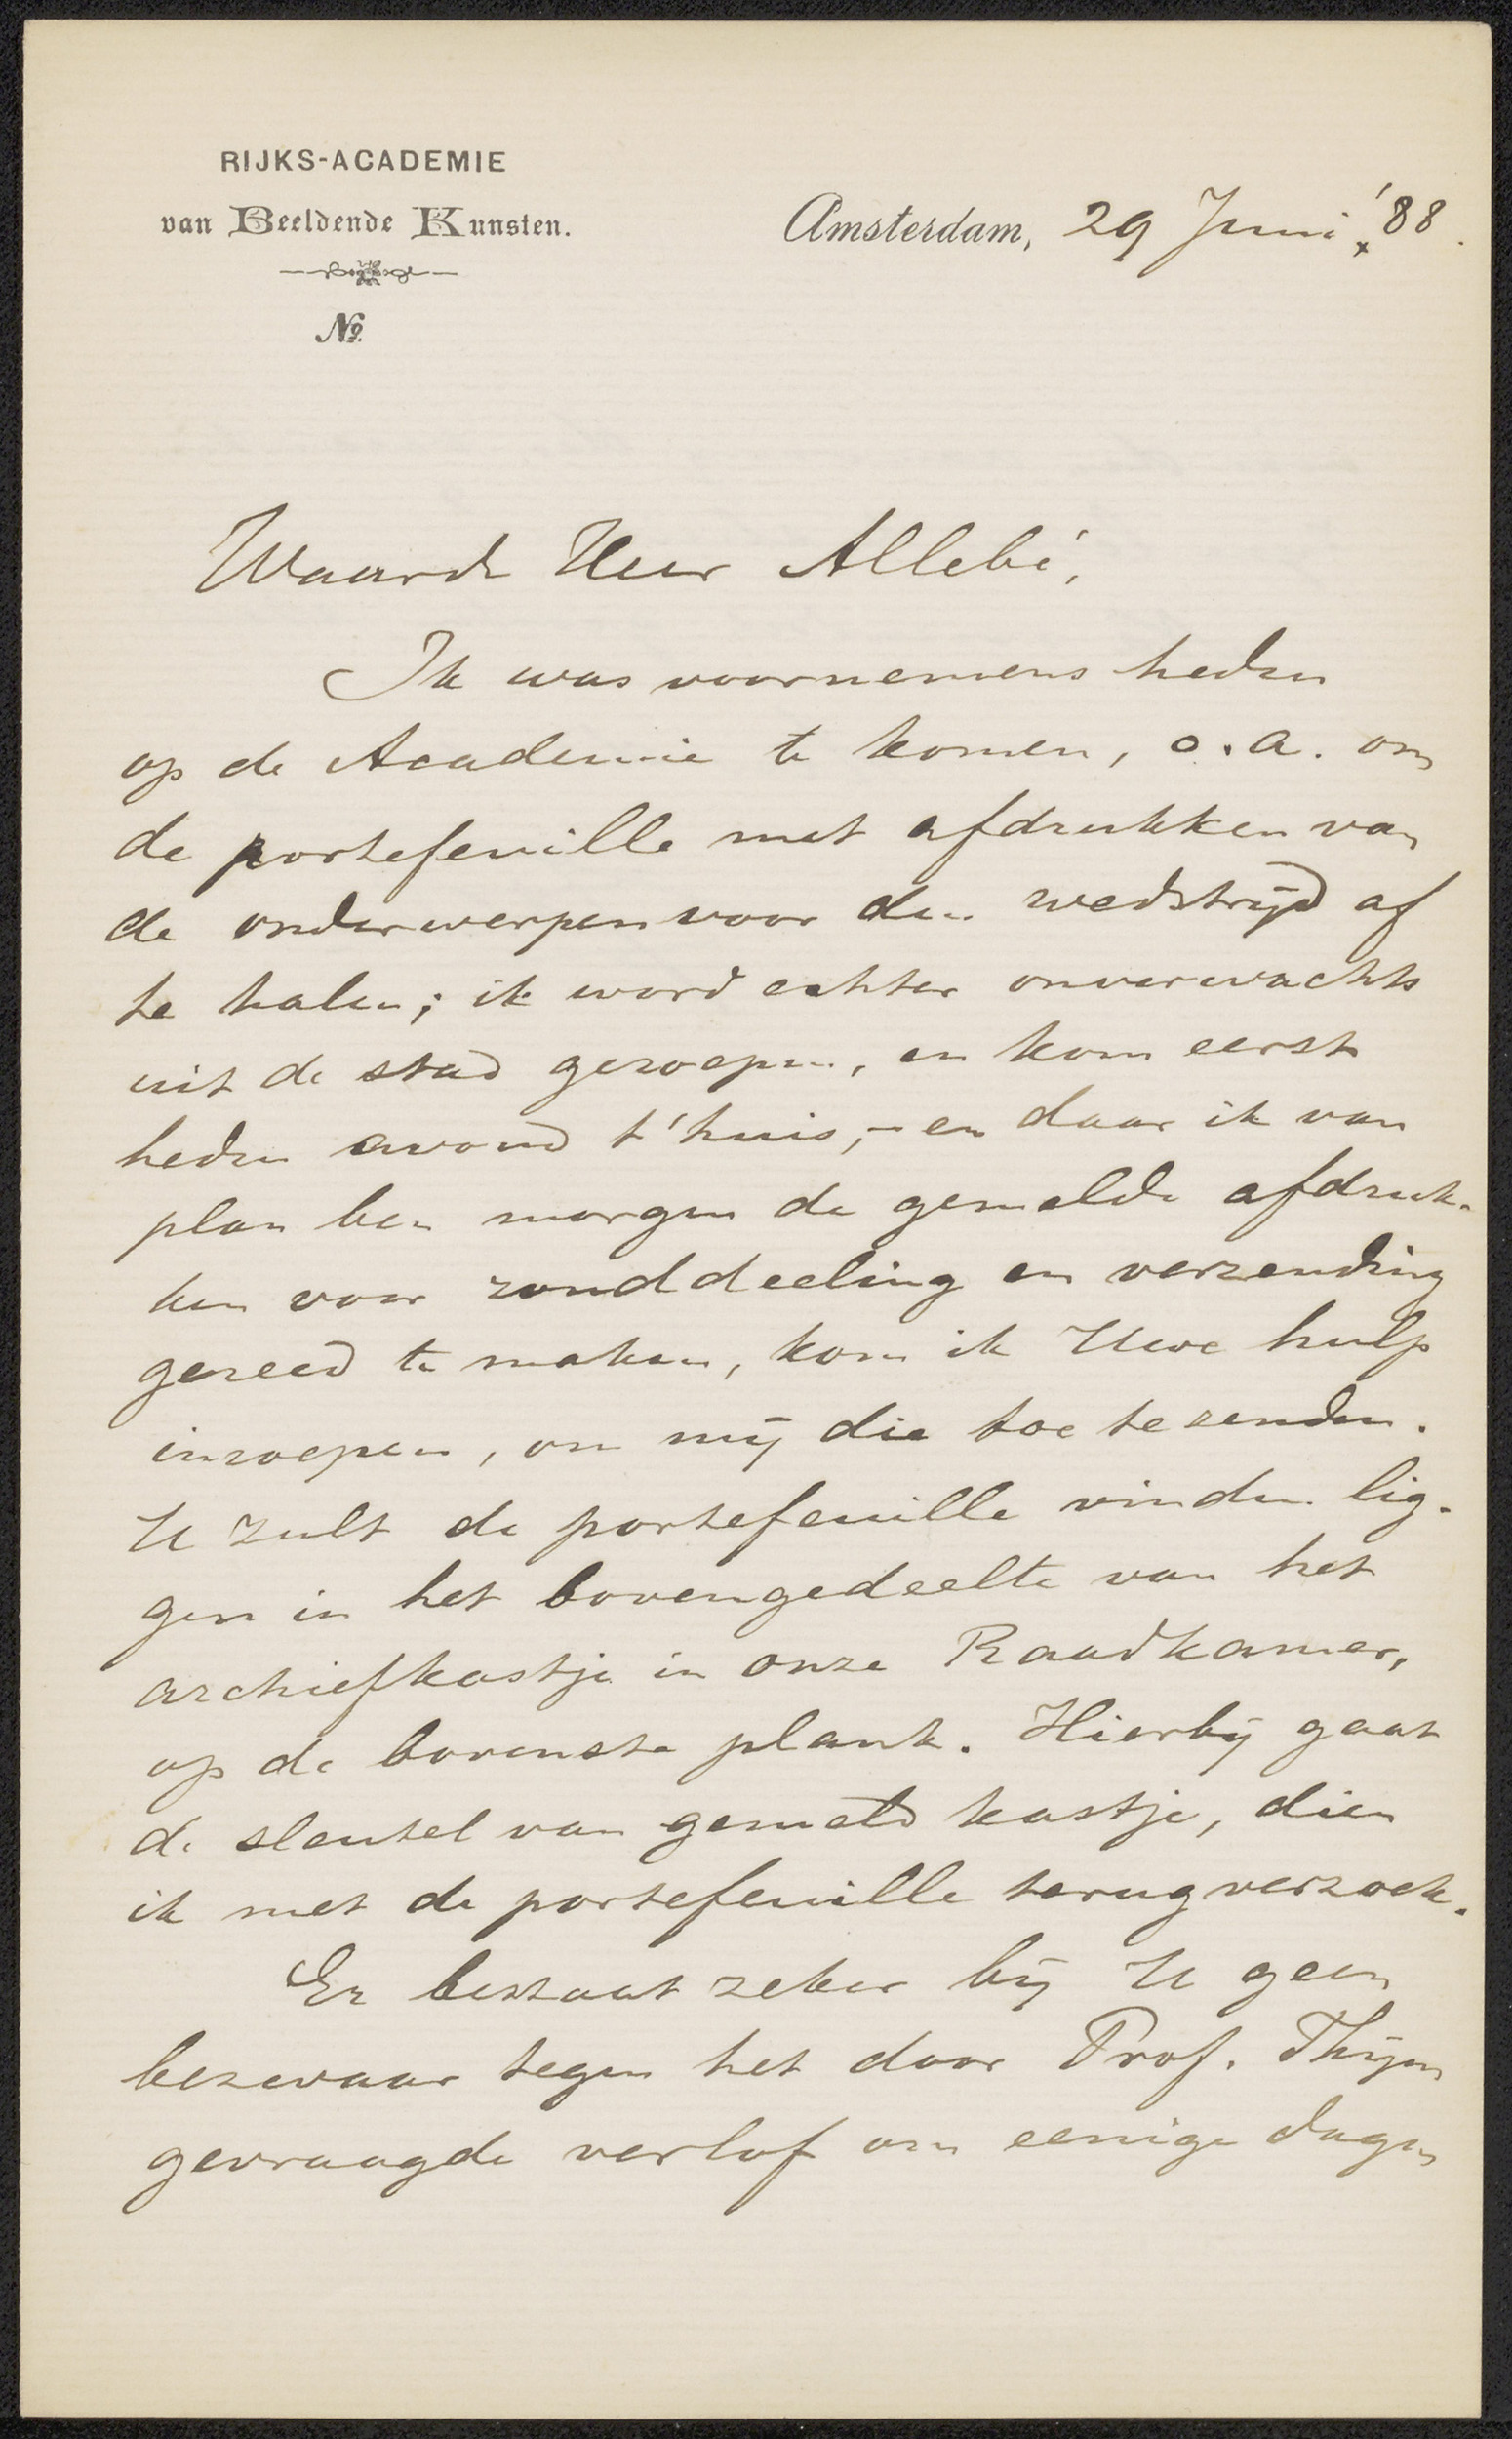 RIJKS-ACADEMIE
van Beeldende Kunsten.
No.
Amsterdam, 29 Juni '88.
Waarde Heer Allebé,
Ik was voornemens heden
op de Academie te komen, o.a. om
de portefeuille met afdrukken van
de onderwerpen voor den wedstrijd af
te halen; ik word echter onverwachts
uit de stad geroepen, en kom eerst
heden avond t'huis, – en daar ik van
plan ben morgen de gemelde afdruk-
ken voor ronddeeling en verzending
gereed te maken, kom ik Uwe hulp
inroepen, om mij die toe te zenden.
U zult de portefeuille vinden lig-
gen in het bovengedeelte van het
archiefkastje in onze Raadkamer,
op de bovenste plank. Hierbij gaat
de sleutel van gemeld kastje, dien
ik met de portefeuille terug verzoek.
Er bestaat zeker bij U geen
bezwaar tegen het door Prof. Thijm
gevraagde verlof om eenige dagen